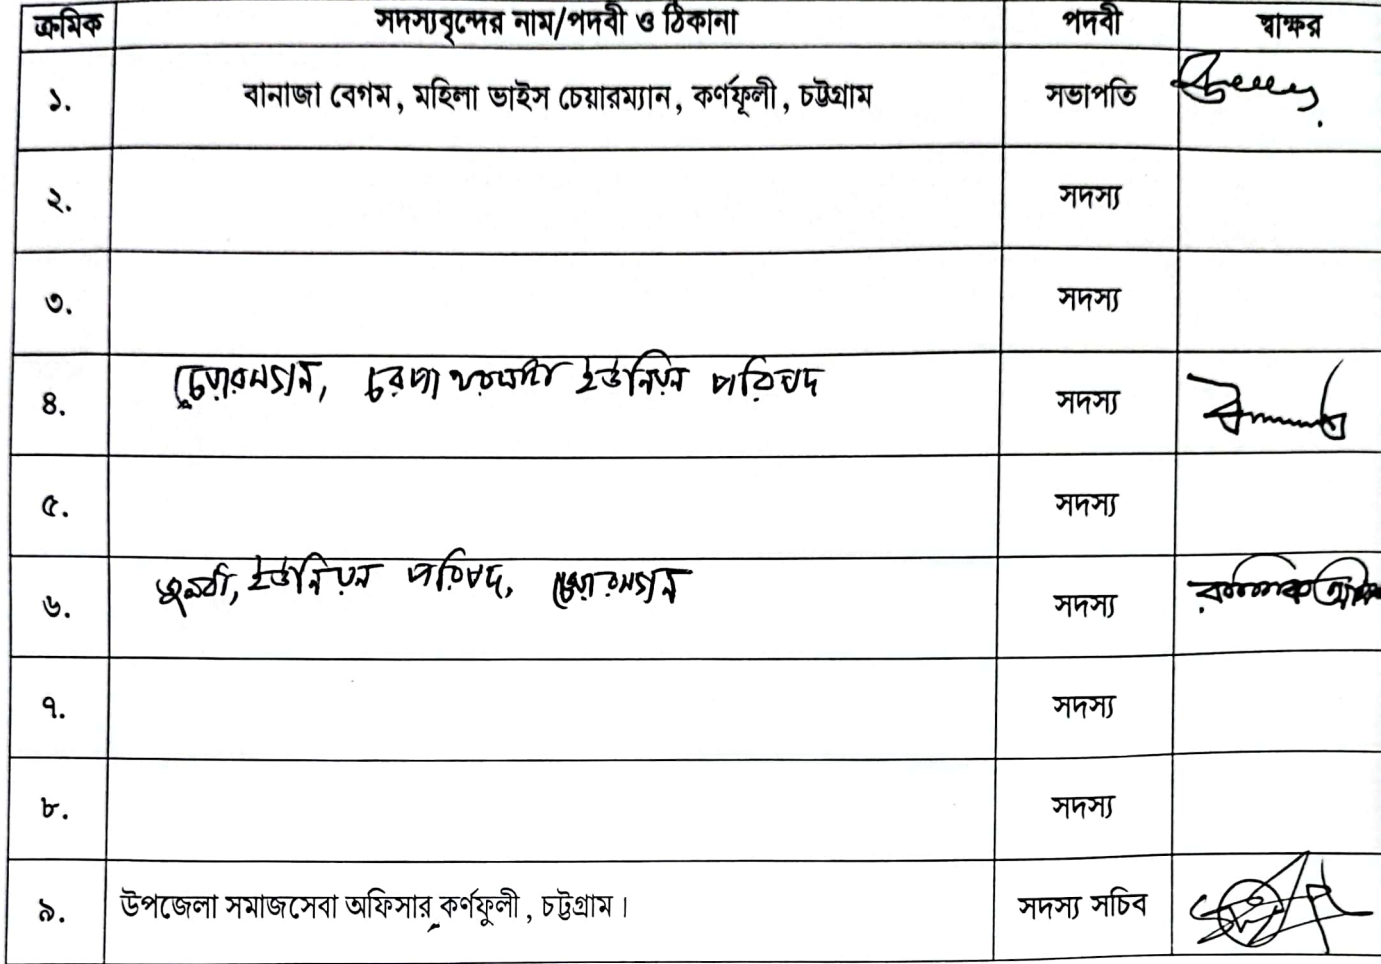 ক্রমিক সদস্যবৃন্দের নাম/পদবী ও ঠিকানা পদবী স্বাক্ষর
১. বানাজা বেগম, মহিলা ভাইস চেয়ারম্যান, কর্ণফূলী, চট্টগ্রাম সভাপতি
২. সদস্য
৩. সদস্য
৪. চেয়ারম্যান, চরপাথরঘাটা ইউনিয়ন পরিষদ সদস্য
৫. সদস্য
৬. ইউনিয়ন পরিষদ, চেয়ারম্যান সদস্য
৭. সদস্য
৮. সদস্য
৯. উপজেলা সমাজসেবা অফিসার কর্ণফুলী, চট্টগ্রাম। সদস্য সচিব